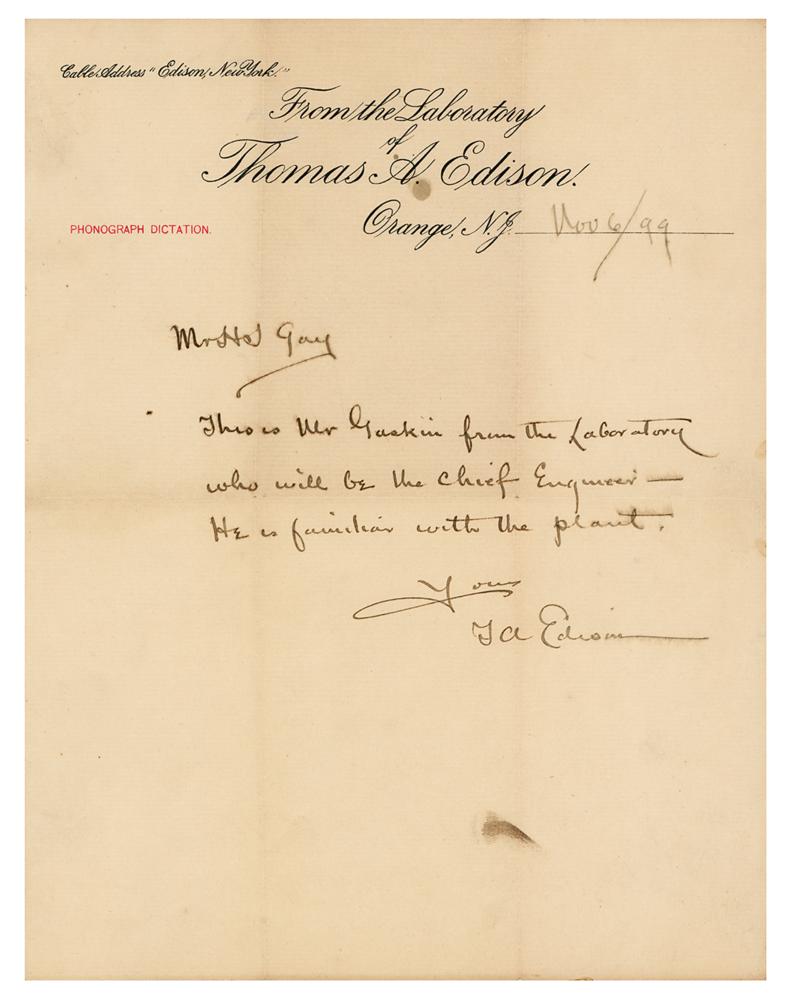 Cable Address "Edison, New York."
From the Laboratory
of
Thomas A. Edison.
Orange, N.J. Nov 6/99
PHONOGRAPH DICTATION.
Mr Gay
This is Mr Gaskin from the Laboratory
who will be the Chief Engineer —
He is familiar with the plant.
Yours
T A Edison